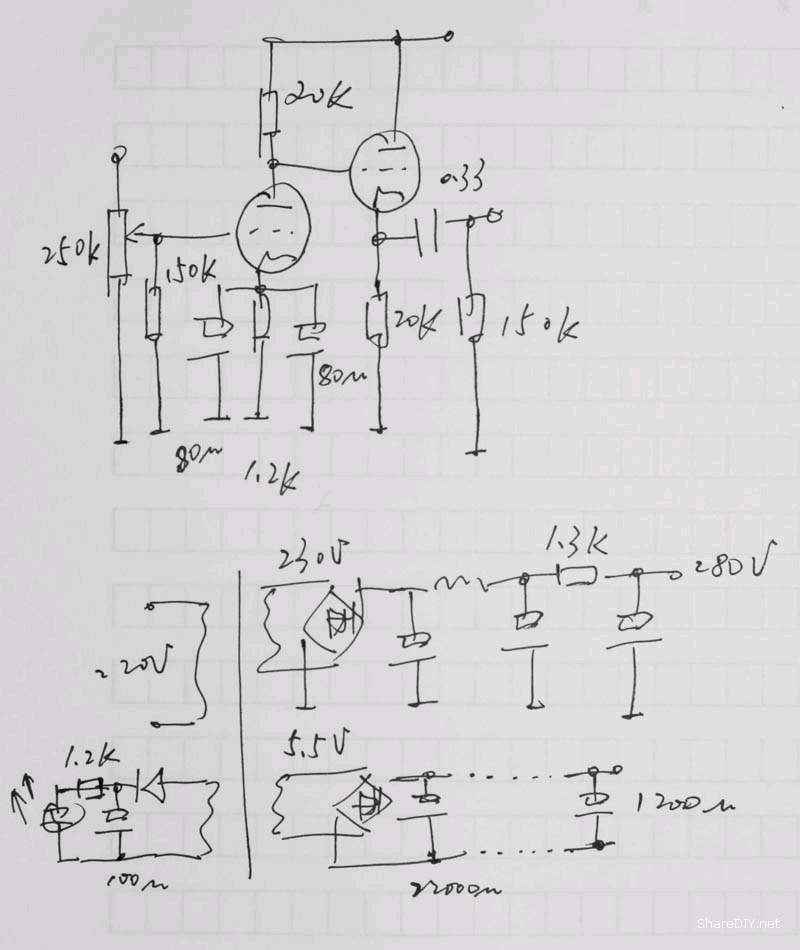 20K
0.33
250k
150K
20K
150k
80u
80u
1.2K
230V
1.3K
280V
220V
5.5V
1.2K
1200u
100u
22000u
ShareDIY.net